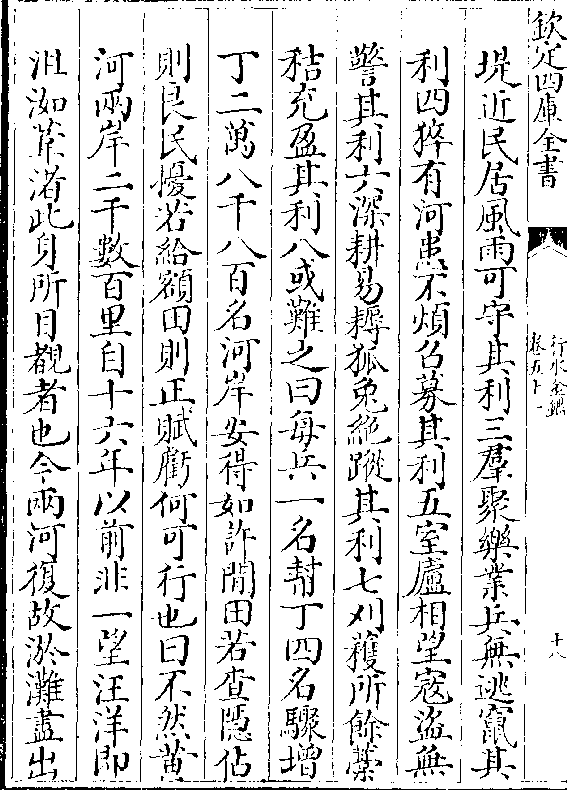 欽定四庫全書
行水金鑑
卷五十一
十八
堤近民居風雨可守其利三羣聚樂業兵無逃竄其
利四猝有河患不煩召募其利五室廬相望寇盜無
警其利六深耕易耨狐兎絶蹤其利七刈穫所餘藁
秸充盈其利八或難之曰每兵一名幇丁四名驟增
丁二萬八千八百名河岸安得如許閒田若查隱佔
則良民擾若給額田則正賦虧何可行也曰不然黄
河兩岸二千數百里自十六年以前非一望汪洋即
沮洳葦渚此身所目覩者也今兩河復故淤灘盡出